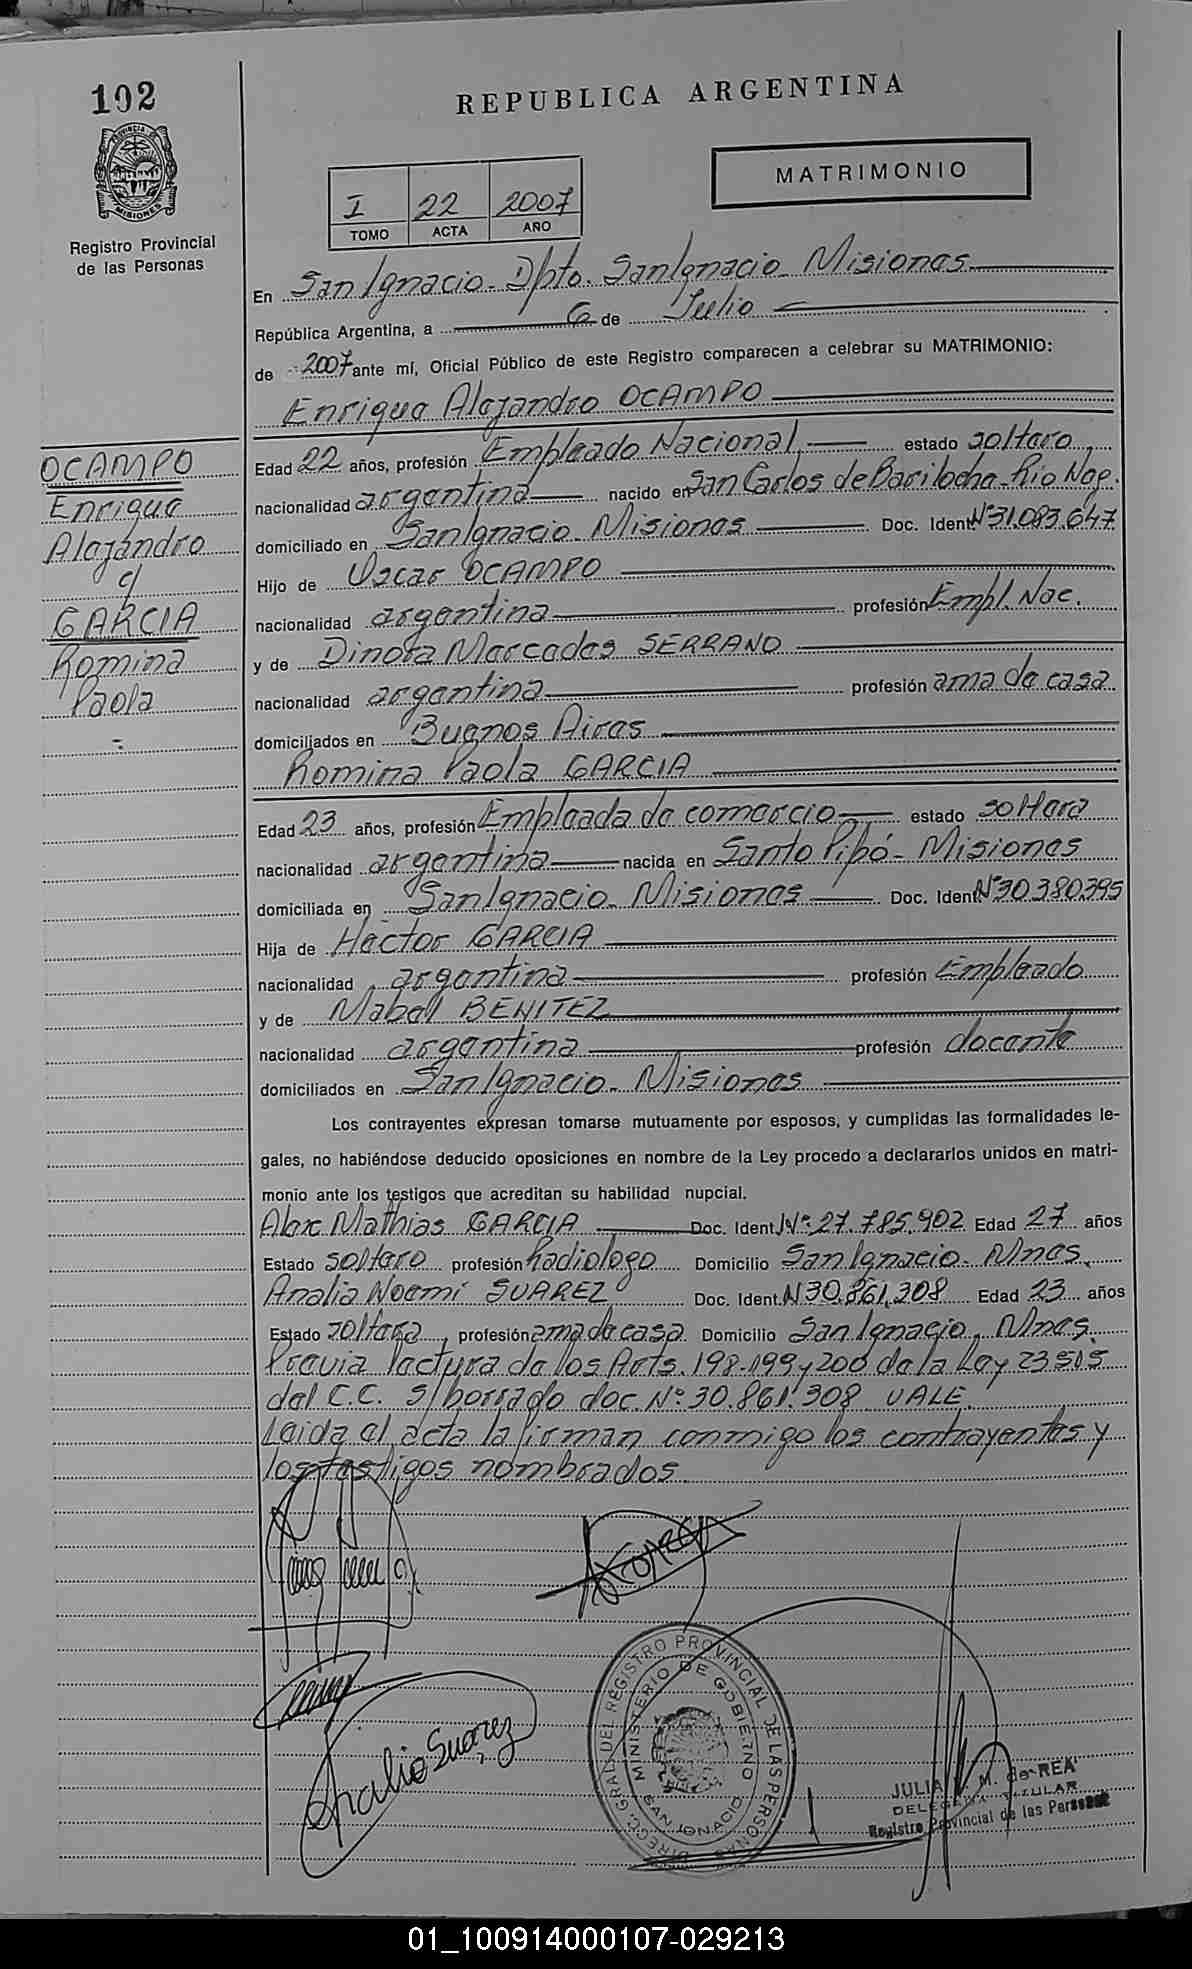 102
REPUBLICA ARGENTINA
MATRIMONIO
PROVINCIA DE
MISIONES
Registro Provincial
de las Personas
I 22 2007
TOMO ACTA AÑO
En San Ignacio - Dpto. San Ignacio - Misiones
República Argentina, a 6 de Julio
de 2007 ante mí, Oficial Público de este Registro comparecen a celebrar su MATRIMONIO:
Enrique Alejandro OCAMPO
OCAMPO
Enrique
Alejandro
c/
GARCIA
Romina
Paola
Edad 22 años, profesión Empleado Nacional, estado soltero,
nacionalidad argentina nacido en San Carlos de Bariloche - Río Neg.
domiciliado en San Ignacio - Misiones Doc. Ident. Nº 31.083.647
Hijo de Oscar OCAMPO
nacionalidad argentina profesión Empl. Nac.
y de Mercedes SERRANO
nacionalidad argentina profesión ama de casa
domiciliados en Buenos Aires
Romina Paola GARCIA
Edad 23 años, profesión Empleada de comercio estado soltera
nacionalidad argentina nacida en Santo Pipó - Misiones
domiciliada en San Ignacio - Misiones Doc. Ident. Nº 30.380.395
Hija de Héctor GARCIA
nacionalidad argentina profesión Empleado
y de Mabel BENITEZ
nacionalidad argentina profesión docente
domiciliados en San Ignacio - Misiones
Los contrayentes expresan tomarse mutuamente por esposos, y cumplidas las formalidades le-
gales, no habiéndose deducido oposiciones en nombre de la Ley procedo a declararlos unidos en matri-
monio ante los testigos que acreditan su habilidad nupcial.
Alex Mathias GARCIA Doc. Ident. Nº: 27.785.902 Edad 27 años
Estado soltero profesión Radiologo Domicilio San Ignacio - Mnes.
Analia Noemí SUAREZ Doc. Ident. N 30.861.308 Edad 23 años
Estado soltera, profesión ama de casa Domicilio San Ignacio, Mnes.
Previa lectura de los Arts. 198-199 y 200 de la Ley 23515
del C.C. S/borrado doc. Nº: 30.861.308 VALE.
Leída el acta la firman conmigo los contrayentes y
los testigos nombrados.
Analia Suarez
DIRECC. GRAL. DEL REGISTRO PROVINCIAL DE LAS PERSONAS
MINISTERIO DE GOBIERNO
SAN IGNACIO
JULIA M. de REA
DELEGADA TITULAR
Registro Provincial de las Personas
01_100914000107-029213